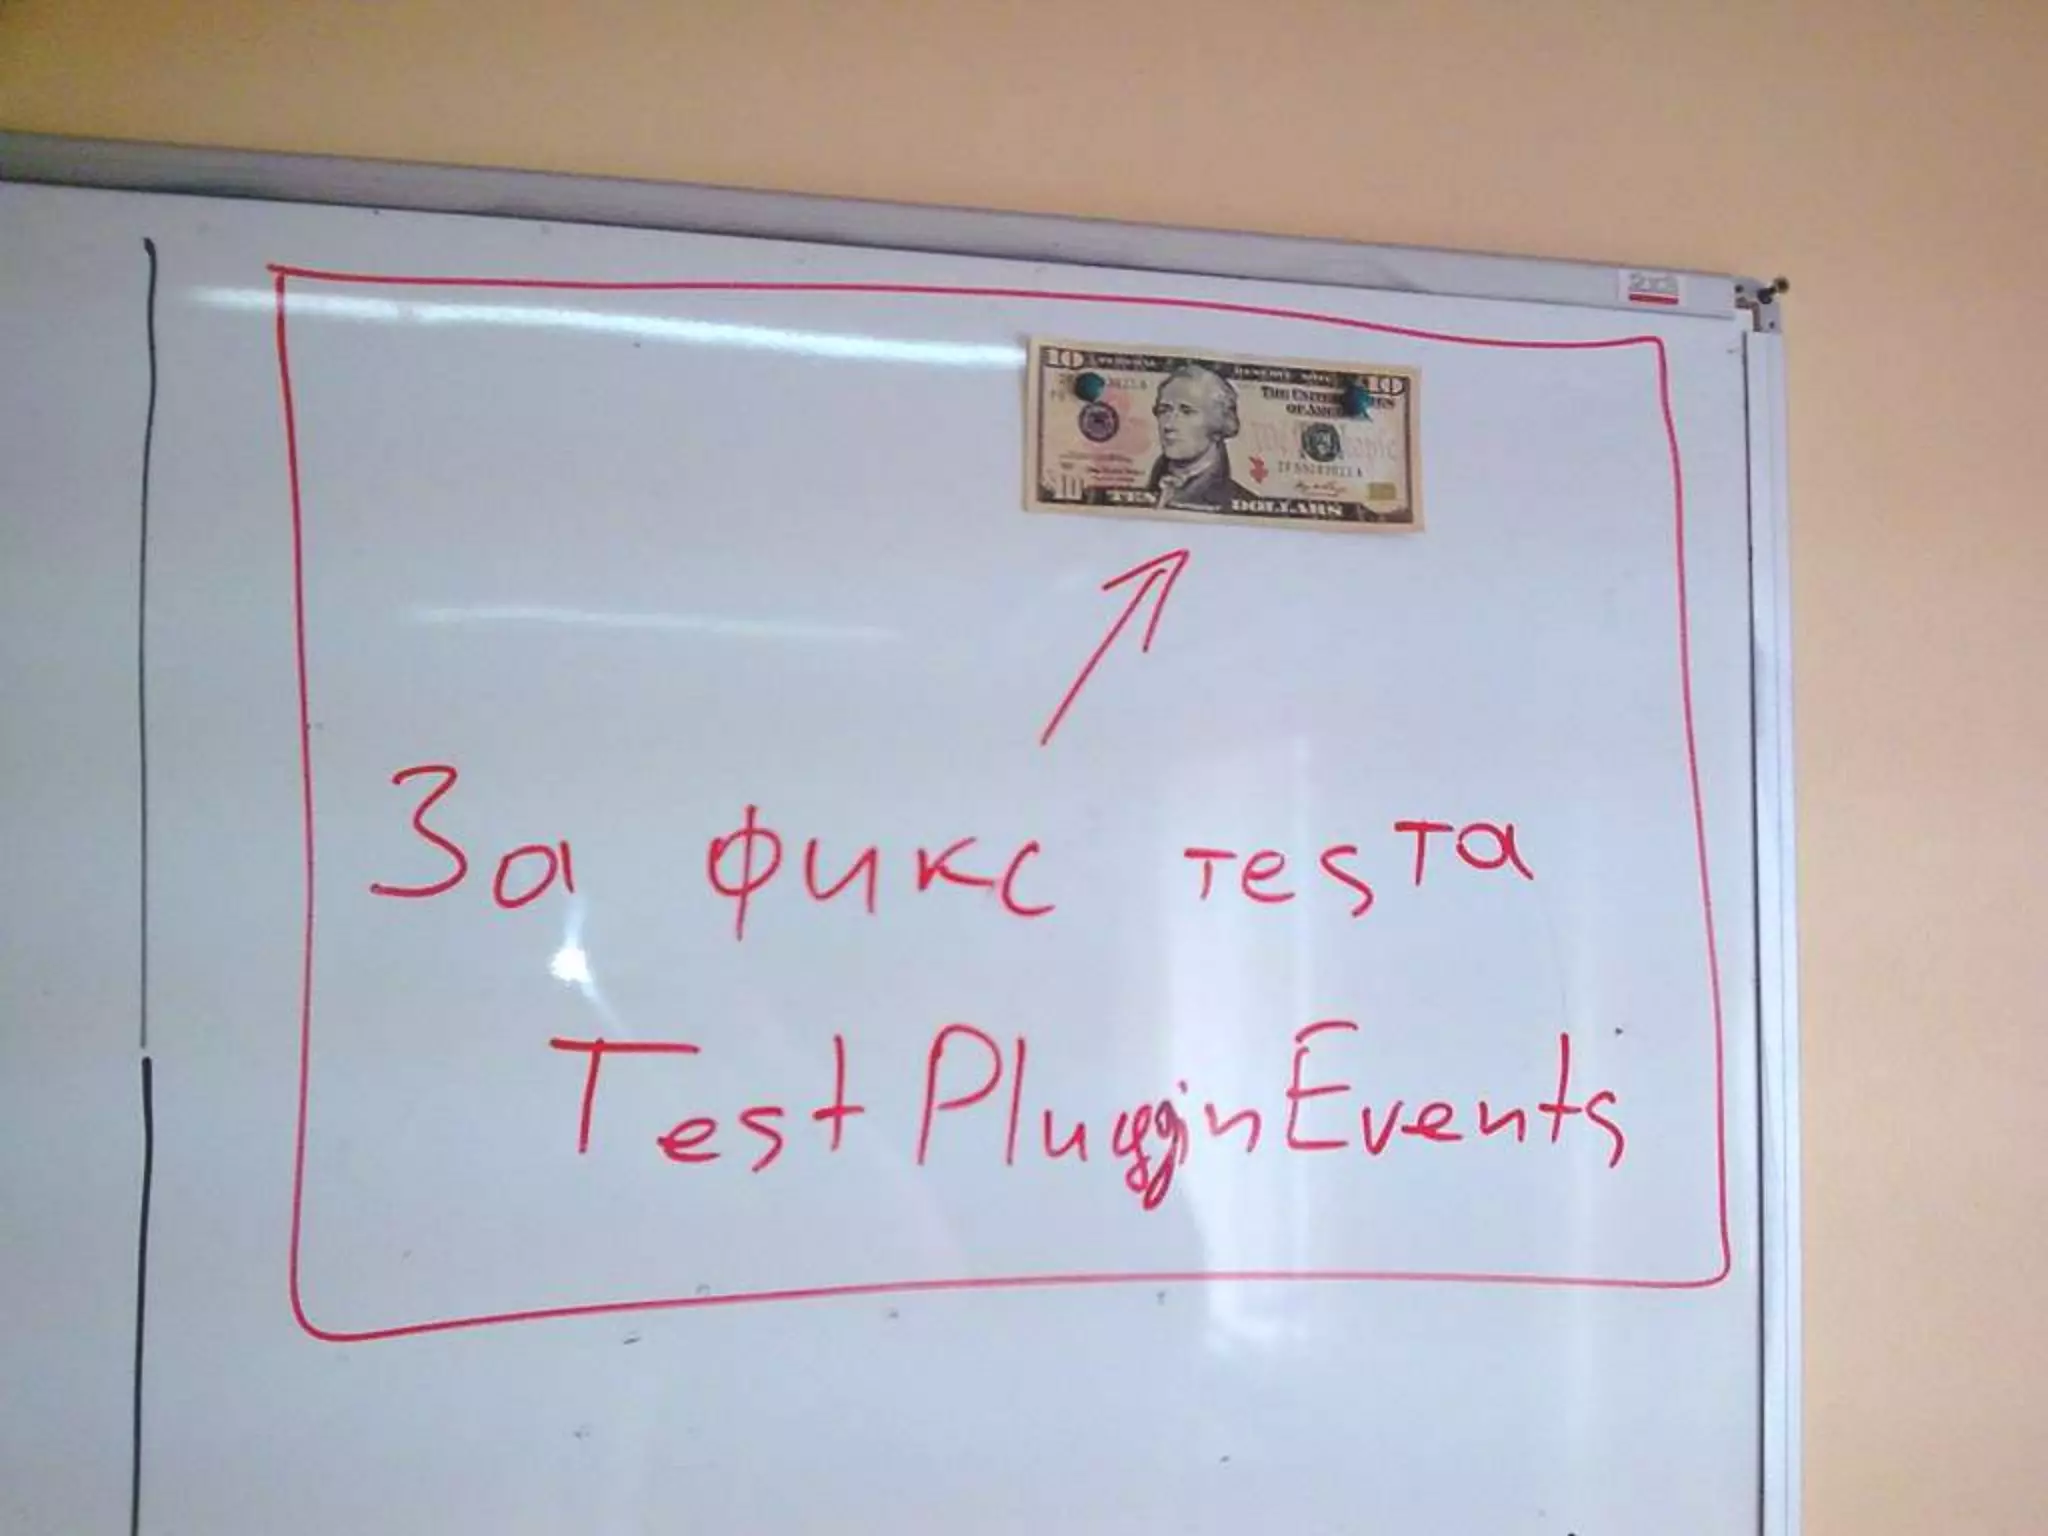 2x3
10
10
THE UNITED STATES
OF AMERICA
10
TEN
DOLLARS
За фикс теsта
TestPluginEvents